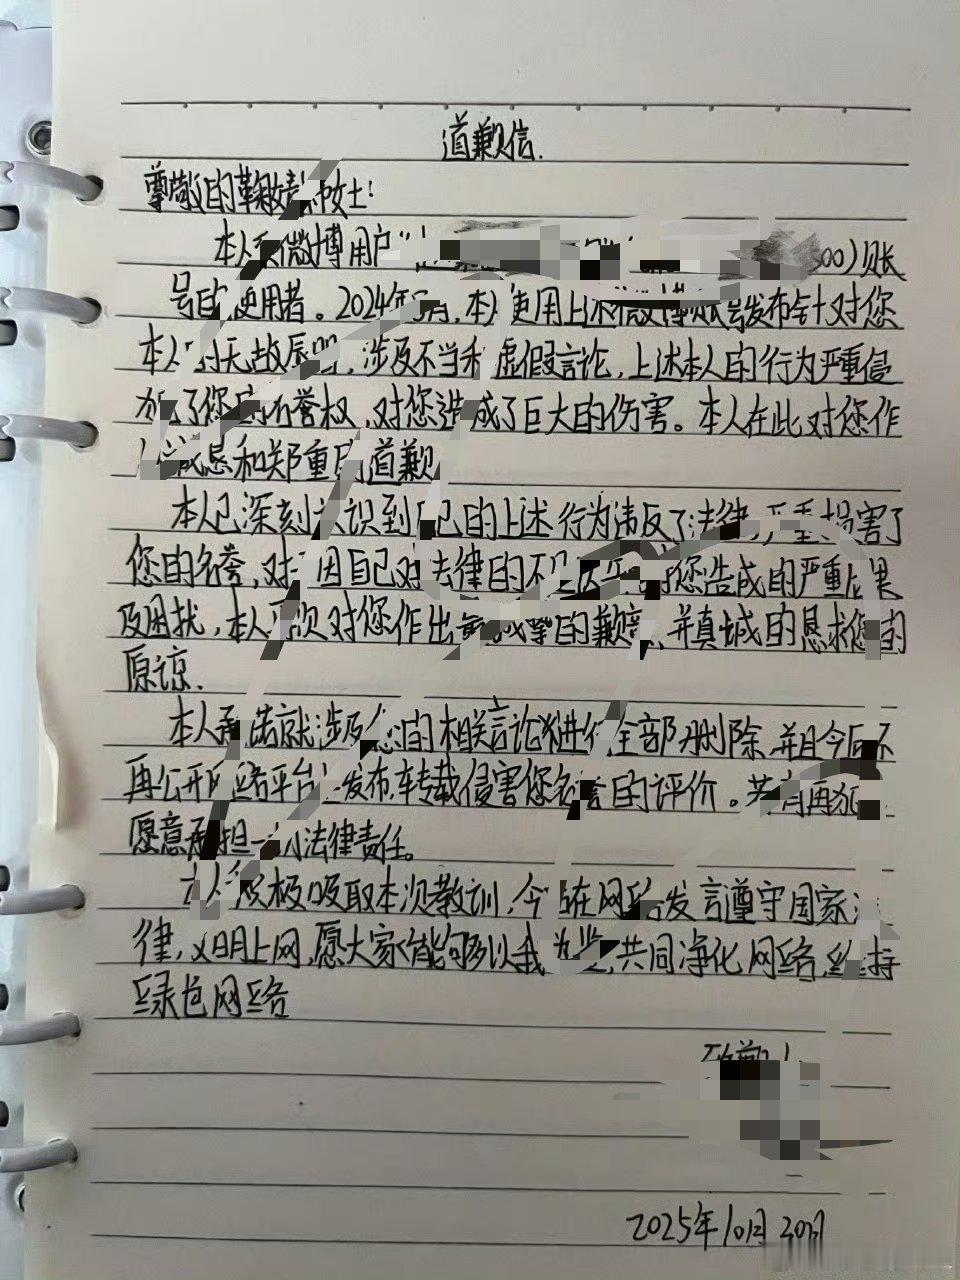 道歉信.
尊敬的鞠婧祎女士：
本人系微博用户“ 00)账
号的使用者。2024年 月，本人使用上述微博账号发布针对您
本人的无故辱骂，涉及不当和虚假言论，上述本人的行为严重侵
犯了您的名誉权，对您造成了巨大的伤害。本人在此对您作
出诚恳和郑重的道歉
本人已深刻认识到自己的上述行为违反了法律，严重损害了
您的名誉，对于因自己对法律的不 对您造成的严重后果
及困扰，本人再次对您作出最诚挚的歉意、并真诚的恳求您的
原谅.
本人承诺就涉及您的相关言论进行全部删除，并且今后不
再公开网络平台上发布，转载侵害您名誉的评价。若有再犯，
愿意承担一切法律责任。
本人会积极吸取本次教训，今后在网络发言遵守国家法
律，文明上网，愿大家能够以我为鉴，共同净化网络，维持
绿色网络
致歉人
2025年10月30日